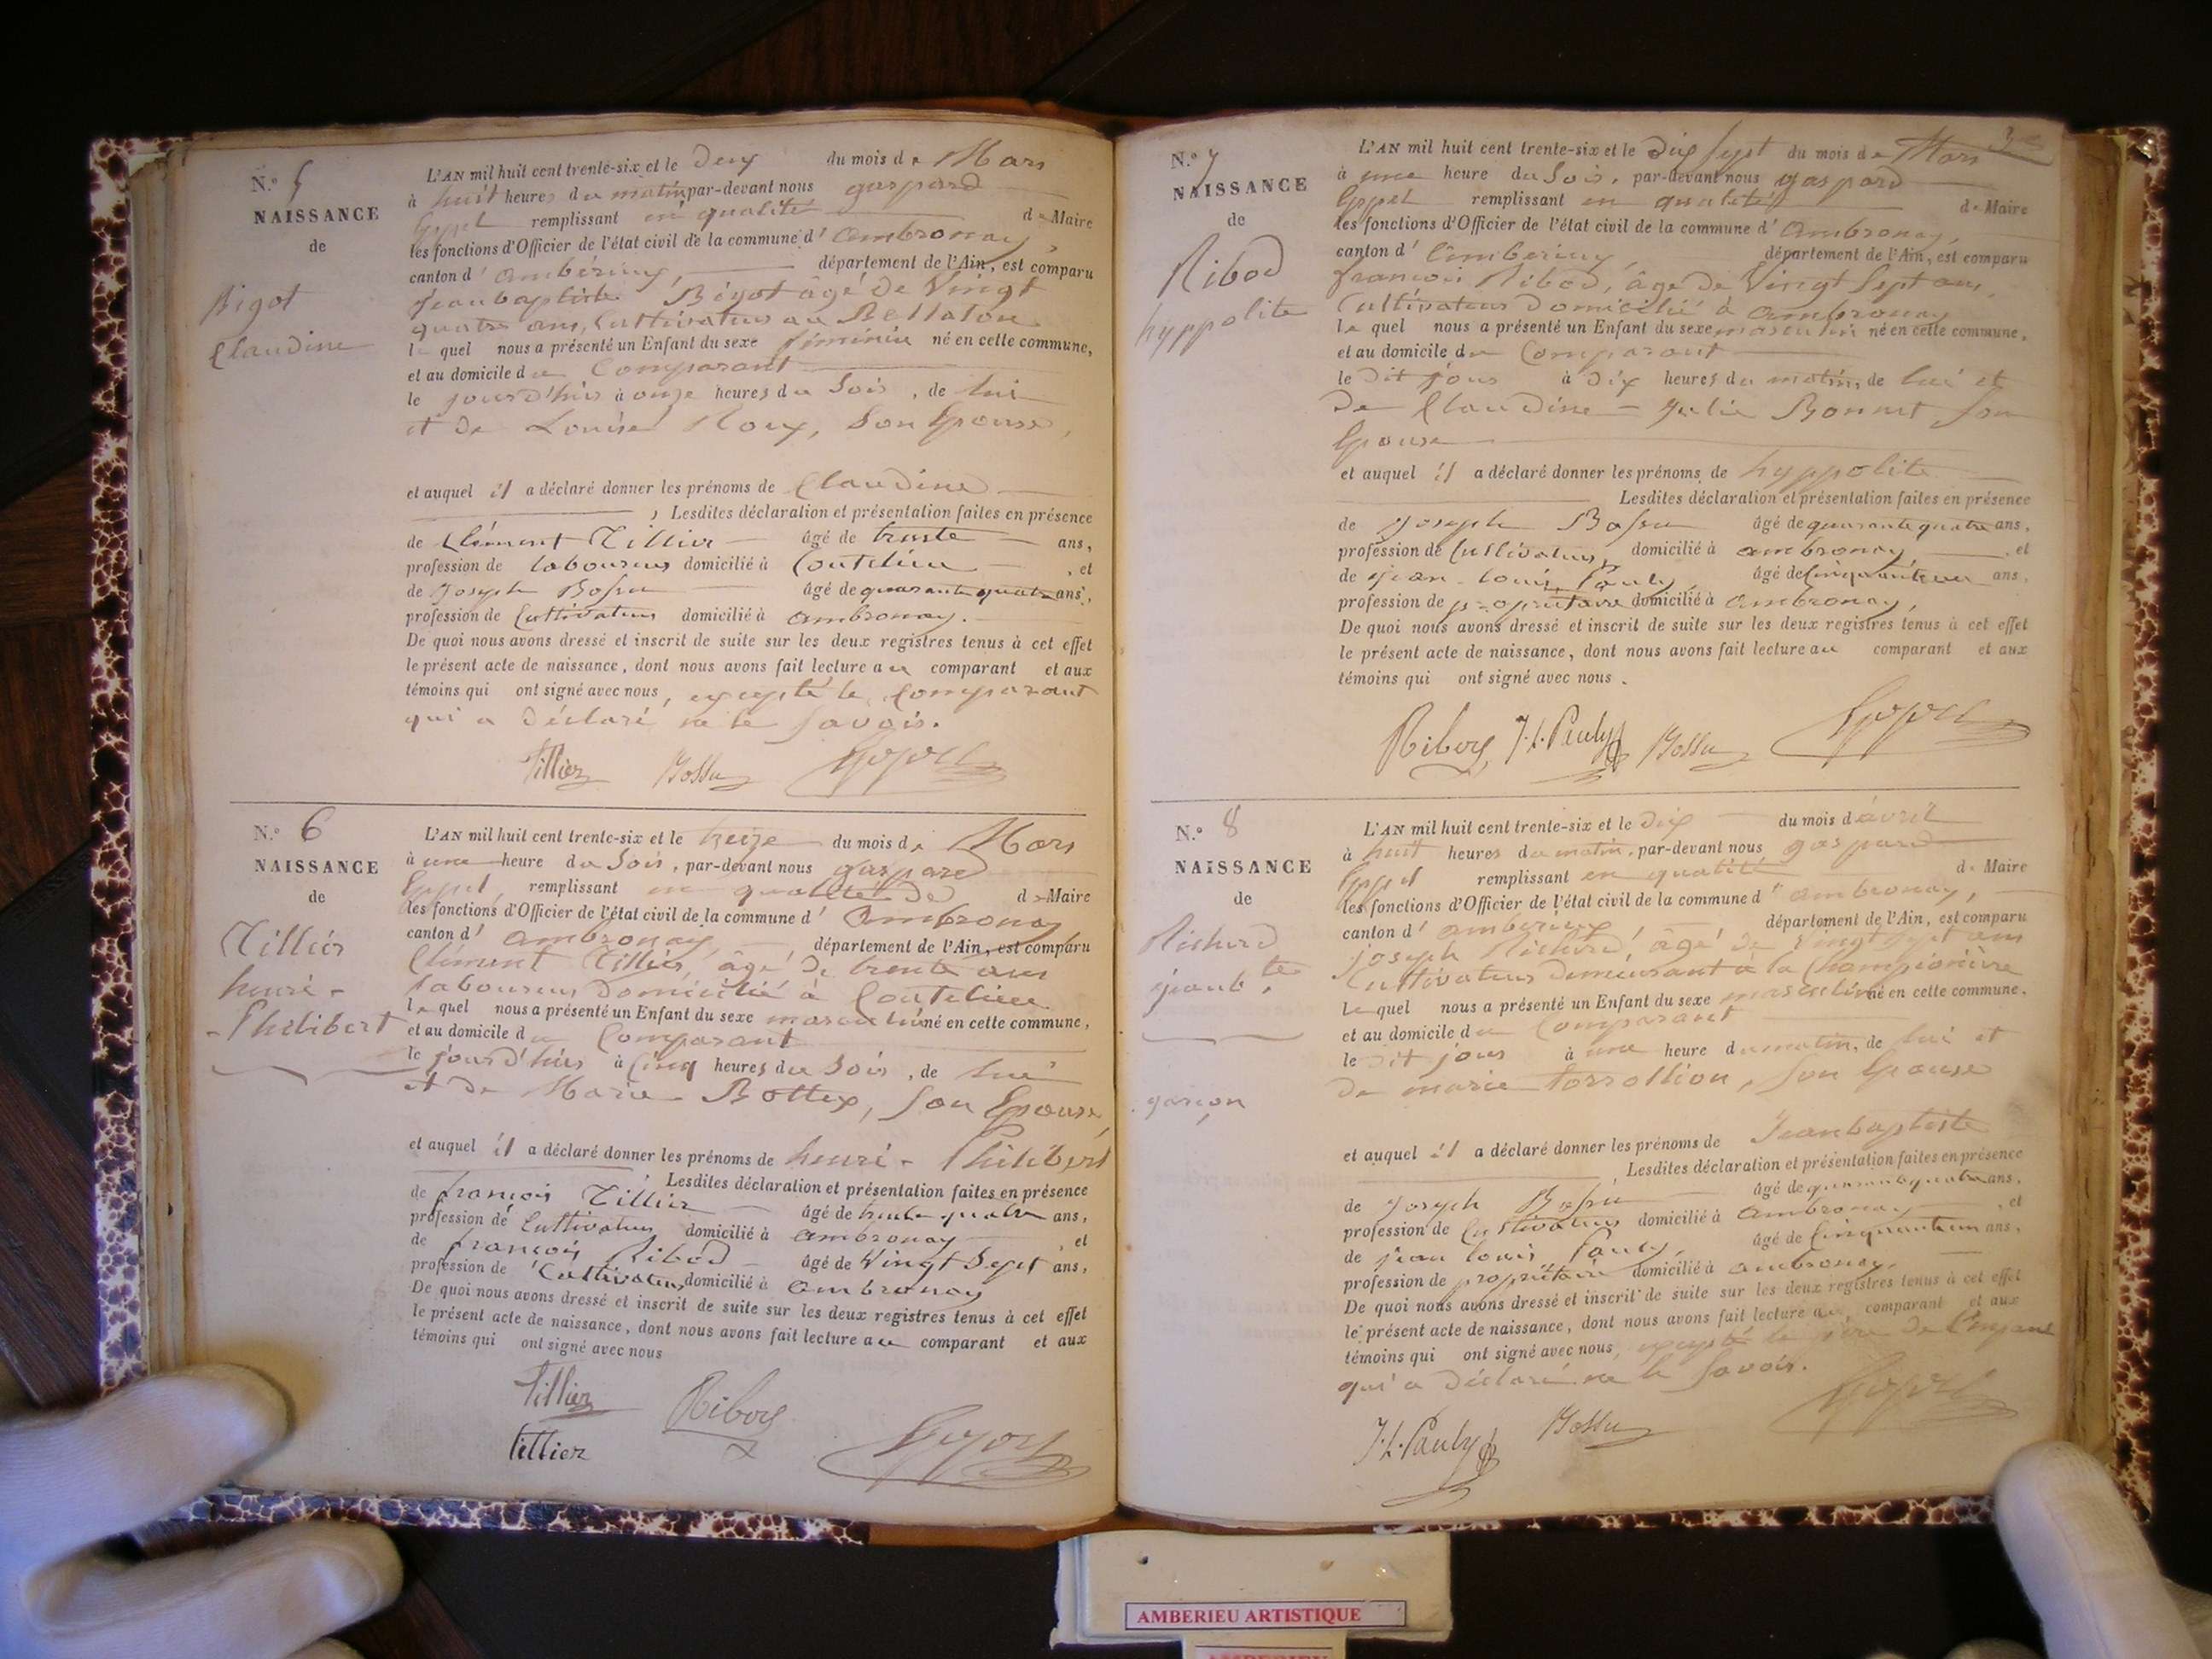 N.º 5
NAISSANCE
de
Bigot
Claudine
L'AN mil huit cent trente-six et le deux du mois de Mars
à huit heures du matin par-devant nous gaspard
remplissant en qualité de Maire
les fonctions d'Officier de l'état civil de la commune d'ambronay,
canton d'ambérieux, département de l'Ain, est comparu
jeanbaptiste Bigot âgé de Vingt
quatre ans, Cultivateur au Bellaton
lequel nous a présenté un Enfant du sexe féminin né en cette commune,
et au domicile du Comparant
le jourd'hui à onze heures du Soir, de lui
et de Louise Roux, Son Epouse,
et auquel il a déclaré donner les prénoms de Claudine
, Lesdites déclaration et présentation faites en présence
de Clément Tillier âgé de trente ans,
profession de laboureur domicilié à Coutelieu, et
de Joseph Bossu âgé de quarante quatre ans,
profession de Cultivateur domicilié à ambronay.
De quoi nous avons dressé et inscrit de suite sur les deux registres tenus à cet effet
le présent acte de naissance, dont nous avons fait lecture au comparant et aux
témoins qui ont signé avec nous, excepté le Comparant
qui a déclaré ne le savoir.
Tillier Bossu
N.º 6
NAISSANCE
de
Tillier
henri-
-Philibert
L'AN mil huit cent trente-six et le treize du mois de Mars
à une heure du Soir, par-devant nous gaspard
remplissant en qualité de de Maire
les fonctions d'Officier de l'état civil de la commune d'ambronay
canton d'ambronay, département de l'Ain, est comparu
Clément Tillier âgé de trente ans
laboureur domicilié à Coutelieu
lequel nous a présenté un Enfant du sexe masculin né en cette commune,
et au domicile du Comparant
le jourd'hui à Cinq heures du Soir, de lui
et de Marie Bottex, Son Epouse,
et auquel il a déclaré donner les prénoms de henri-Philibert
, Lesdites déclaration et présentation faites en présence
de françois Tillier âgé de trente quatre ans,
profession de Cultivateur domicilié à ambronay, et
de françois Ribod âgé de Vingt Sept ans,
profession de Cultivateur domicilié à ambronay
De quoi nous avons dressé et inscrit de suite sur les deux registres tenus à cet effet
le présent acte de naissance, dont nous avons fait lecture au comparant et aux
témoins qui ont signé avec nous
Tillier Ribod
Tillier
3
N.º 7
NAISSANCE
de
Ribod
hyppolite
L'AN mil huit cent trente-six et le dix sept du mois de Mars
à une heure du Soir, par-devant nous gaspard
remplissant en qualité de Maire
les fonctions d'Officier de l'état civil de la commune d'ambronay,
canton d'ambérieux, département de l'Ain, est comparu
françois Ribod, âgé de Vingt Sept ans,
Cultivateur domicilié à ambronay
lequel nous a présenté un Enfant du sexe masculin né en cette commune,
et au domicile du Comparant
le dit jour à dix heures du matin, de lui et
de Claudine-Julie Bonnet Son
Epouse
et auquel il a déclaré donner les prénoms de hyppolite
Lesdites déclaration et présentation faites en présence
de Joseph Bossu âgé de quarante quatre ans,
profession de Cultivateur, domicilié à ambronay, et
de jean-louis Pauly âgé de Cinquante un ans,
profession de propriétaire domicilié à ambronay,
De quoi nous avons dressé et inscrit de suite sur les deux registres tenus à cet effet
le présent acte de naissance, dont nous avons fait lecture au comparant et aux
témoins qui ont signé avec nous.
Ribod J.L. Pauly Bossu
N.º 8
NAISSANCE
de
Richerd
jeanb.te
garçon
L'AN mil huit cent trente-six et le dix du mois d'avril
à huit heures du matin, par-devant nous gaspard
remplissant en qualité de Maire
les fonctions d'Officier de l'état civil de la commune d'ambronay,
canton d'ambérieux, département de l'Ain, est comparu
joseph Richerd, âgé de Vingt Sept ans
Cultivateur demeurant à la Championière
Lequel nous a présenté un Enfant du sexe masculin né en cette commune.
et au domicile du Comparant
le dit jour à une heure du matin, de lui et
de marie Son Epouse
et auquel il a déclaré donner les prénoms de Jeanbaptiste
, Lesdites déclaration et présentation faites en présence
de Joseph Bossu âgé de quarante quatre ans,
profession de Cultivateur domicilié à ambronay, et
de jean louis Pauly, âgé de Cinquante un ans,
profession de propriétaire domicilié à ambronay.
De quoi nous avons dressé et inscrit de suite sur les deux registres tenus à cet effet
le présent acte de naissance, dont nous avons fait lecture au comparant et aux
témoins qui ont signé avec nous excepté le père de l'enfant
qui a déclaré ne le savoir.
J.L. Pauly Bossu
AMBERIEU ARTISTIQUE